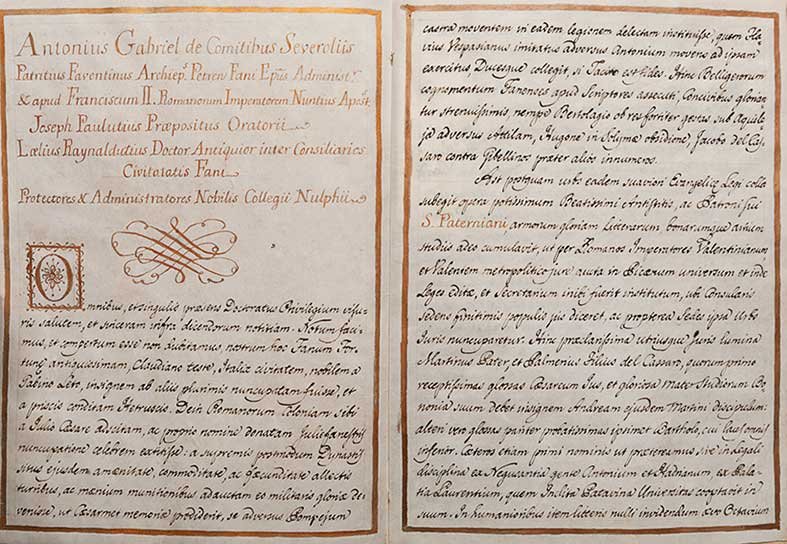 Antonius Gabriel de Comitibus Severoliis
Patritius Faventinus Archiep.s Petren Fani Ep̃us Administ.r
& apud Franciscum II. Romanorum Imperatorem Nuntius Apost.
Joseph Paulutius Præpositus Oratorii
Lælius Raynaldutius Doctor Antiquior inter Consiliarios
Civitatis Fani
Protectores & Administratores Nobilis Collegii Nulphii
Omnibus, et singulis præsens Doctoratus Privilegium visu-
ris salutem, et sinceram infra dicendorum notitiam. Notum faci-
mus, et compertum esse non dubitamus, nostrum hoc Fanum For-
tunę antiquissimam, Claudiano teste, Italiæ civitatem, nobilem a
Pabino Leto, insignem ab aliis plurimis nuncupatam fuisse, et
a priscis conditam Hetruscis. Dein Romanorum Coloniam sibi
a Julio Cæsare adscitam, ac proprio nomine donatam Julię fanestris
nuncupatione celebrem extitisse: a supremis postmodum Dynastis
situs ejusdem amænitate, commoditate, ac fæcunditate allectis
turribus, ac mænium munitionibus adauctam eo militaris gloriæ de-
venisse, ut Cæsar met memoriæ prodiderit, se adversus Pompejum
castra moventem in eadem legionem delectam instituisse, quem Fla-
vius Vespasianus imitatus adversus Antonium movens ad ipsam
exercitus, Ducesque collegit, si Tacito est fides. Hinc Belligerorum
cognomentum Fanenses apud Scriptores assecuti, Concivibus glorian-
tur strenuissimis, nempe Bertolagio ob res fortiter gestas sub Aquile-
ja adversus Attilam, Hugone in Solymæ obsidione, Jacobo del Cas-
saro contra Gibellinos præter alios innumeros.
Ast postquam urbs eadem suaviori Evangelicę Legi colla
subegit opera potissimum Beatissimi Antistitis, ac Patroni sui
S. Paterniani, armorum gloriam litterarum bonarumque artium
studiis adeo cumulavit, ut per Romanos Imperatores Valentinianum,
et Valentem metropolitico jure aucta in Picænum universum et inde
Leges editæ, et Secretarium inibi fuerit institutum, ubi Consularis
sedens finitimis populis jus diceret, ac propterea Sedes ipsa Urbs
Juris nuncuparetur. Hinc præclarissima utriusque Juris lumina
Martinus Pater, et Palmerius Filius del Cassaro, quorum primo
receptissimas glossas Cæsareum Jus, et gloriosa Mater Studiorum Bo-
nonia suum debet insignem Andream ejusdem Martini discipulum:
alteri vero glossas pariter probatissimas ipsimet Bartholo, cui laus
inservit. Cæteros etiam primi nominis ut præteramus, sive in Legali
disciplina ex Negusantia gente Antonium et Hadrianum, ex Pala-
tia Laurentium, quem Inclita Patavina Universitas cooptavit in
suum. In humanioribus item litteris nulli invidendum ævo Octavium